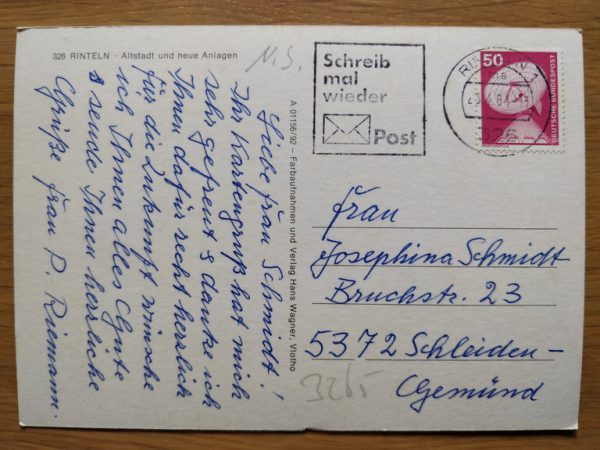 326 RINTELN - Altstadt und neue Anlagen
N.S.
Liebe Frau Schmidt!
Ihr Kartengruß hat mich
sehr gefreut & danke ich
Ihnen dafür recht herzlich
für die Zukunft wünsche
ich Ihnen alles Gute
& sende Ihnen herzliche
Grüße Frau P. Riemann.
A 01156/92 – Farbaufnahmen und Verlag Hans Wagner, Vlotho
Schreib
mal
wieder
Post
50
DEUTSCHE BUNDESPOST
326
Frau
Josephina Schmidt
Bruchstr. 23
5372 Schleiden-
Gemünd